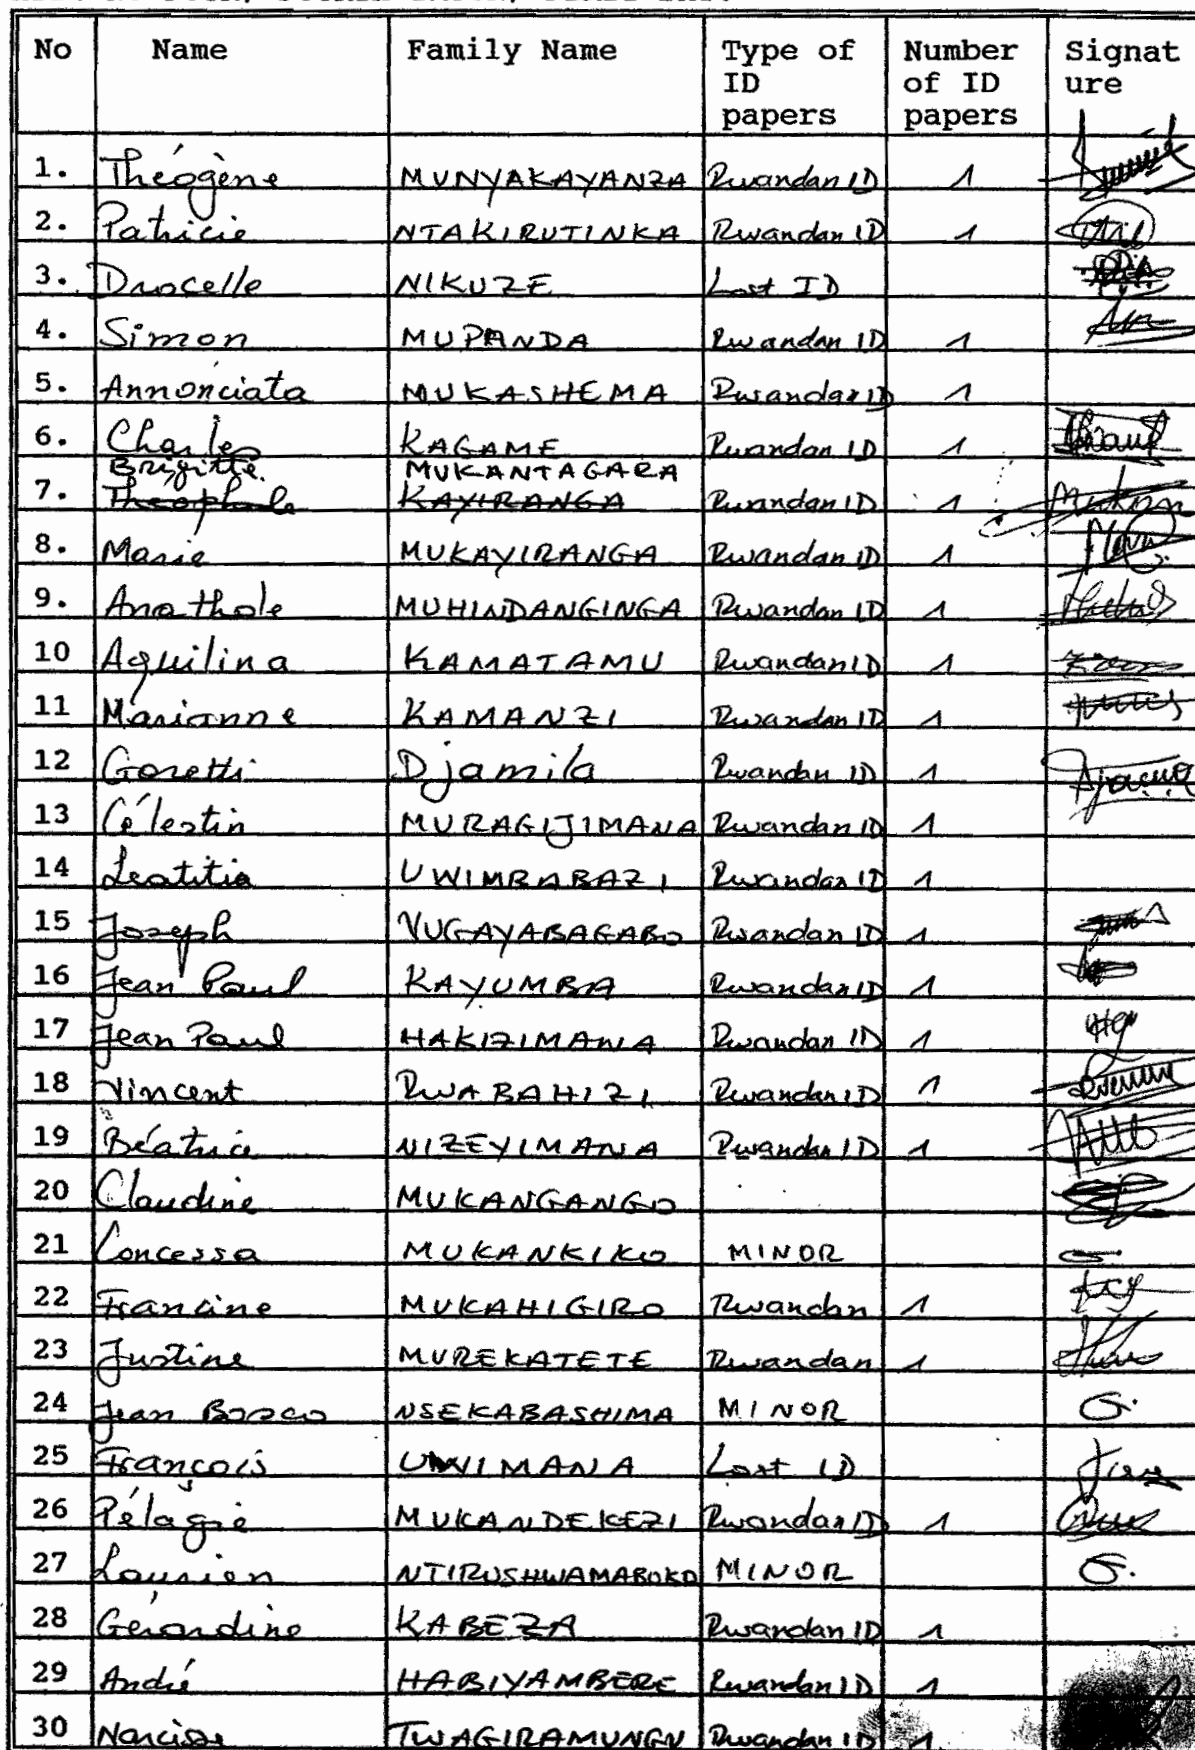 No Name Family Name Type of ID papers Number of ID papers Signat ure
1. Théogène MUNYAKAYANZA Rwandan ID 1
2. Patricie NTAKIRUTINKA Rwandan ID 1
3. Drocelle NIKUZE Lost ID
4. Simon MUPANDA Rwandan ID 1
5. Annonciata MUKASHEMA Rwandan ID 1
6. Charles KAGAME Rwandan ID 1
Brigitte MUKANTAGARA
7. Theophile KAYIRANGA Rwandan ID 1
8. Marie MUKAYIRANGA Rwandan ID 1
9. Anathole MUHINDANGINGA Rwandan ID 1
10 Aquilina KAMATAMU Rwandan ID 1
11 Marianne KAMANZI Rwandan ID 1
12 Goretti Djamila Rwandan ID 1
13 Célestin MURAGIJIMANA Rwandan ID 1
14 Leatitia UWIMRABAZI Rwandan ID 1
15 Joseph VUGAYABAGABO Rwandan ID 1
16 Jean Paul KAYUMBA Rwandan ID 1
17 Jean Paul HAKIZIMANA Rwandan ID 1
18 Vincent RWABAHIZI Rwandan ID 1
19 Béatrice NIZEYIMANA Rwandan ID 1
20 Claudine MUKANGANGO
21 Concessa MUKANKIKO MINOR
22 Francine MUKAHIGIRO Rwandan 1
23 Justine MUREKATETE Rwandan 1
24 Jean Bosco NSEKABASHIMA MINOR
25 François UWIMANA Lost ID
26 Pélagie MUKANDEKEZI Rwandan ID 1
27 Laurien NTIRUSHWAMABOKO MINOR
28 Gérardine KABEZA Rwandan ID 1
29 André HABIYAMBERE Rwandan ID 1
30 Narcisse TWAGIRAMUNGU Rwandan ID 1